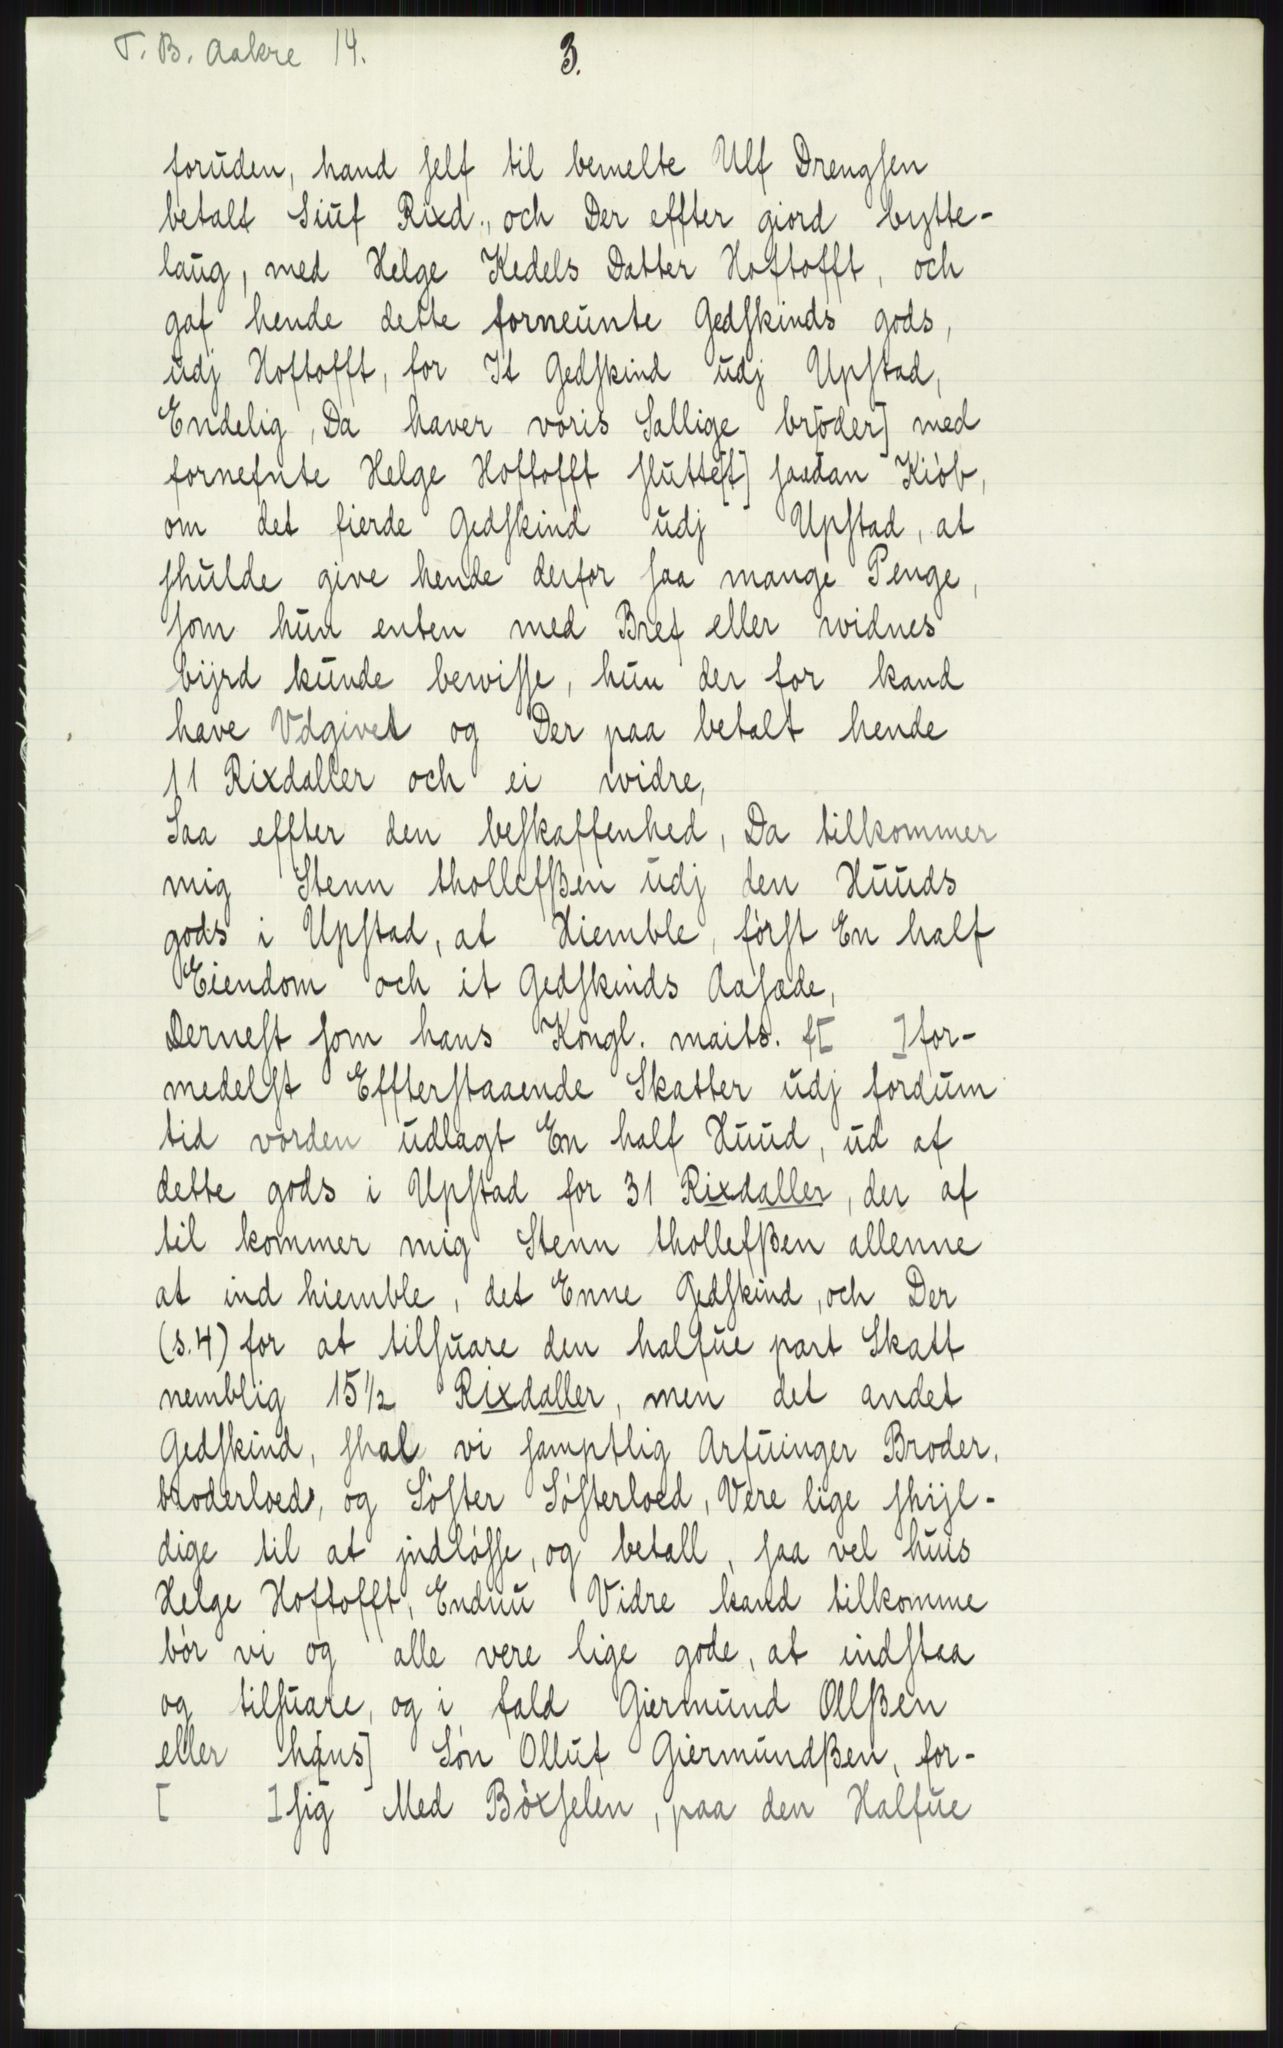 T. B. Aakre 14.
3.
foruden, hand self til bemelte Ulf Drengsen
betalt Siuf Rixd., och Der effter giord bytte-
laug, med Helge Kedels Datter Hoftofft, och
gaf hende dette forneunte Gedskinds gods,
udj Hoftofft, for It Gedskind udj Upstad,
Endelig, Da haver voris Sallige br[oder] med
fornefnte Helge Hoftofft slutte[t] saadan Kiøb,
om det fierde Gedskind udj Upstad, at
shulde give hende derfor saa mange Penge,
som hun enten med Bref eller widnes
bijrd kunde bewisse, hun der for kand
have Vdgivet og Der paa betalt hende
11 Rixdaller och ei widre,
Saa effter den beskaffenhed, Da tilkommer
mig Stenn thollefßen udj den Huuds
gods i Upstad, at Hiemble, først En half
Eiendom och it Gedskinds Aasæde,
Dernest som hans Kongl. maits. f[ ]for-
medelst Effterstaaende Skatter udj fordum
tid vorden udlagt En half Huud, ud af
dette gods i Upstad for 31 Rixdaller, der af
til kommer mig Stenn thollefßen allenne
at ind hiemble, det Enne Gedskind, och Der
(s.4) for at tilsuare den halfue part Skatt
nemblig 15½ Rixdaller, men det andet
Gedskind, shal vi samptlig Arfuinger Broder,
broderloed, og Søster Søsterloed, Vere lige shijl-
dige til at jndløsse, og betall, saa vel huis
Helge Hoftofft, Endnu Vidre kand tilkomme
bør vi og alle vere lige gode, at indstaa
og tilsuare, og i fald Giermund Ollßen
eller ha[ns] Søn Olluf Giermundßen, for-
[ ]sig Med Bøxselen, paa den Halfue